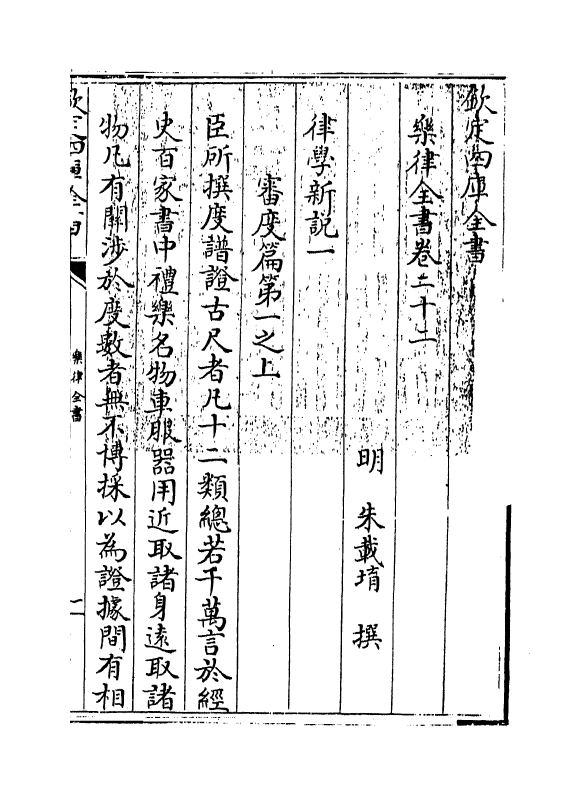 欽定四庫全書
樂律全書卷二十二
明 朱載堉 撰
律學新說一
審度篇第一之上
臣所撰度譜證古尺者凡十二類總若千萬言於經
史百家書中禮樂名物車服器用近取諸身遠取諸
物凡有關涉於度數者無不博採以為證據間有相
樂律全書
一